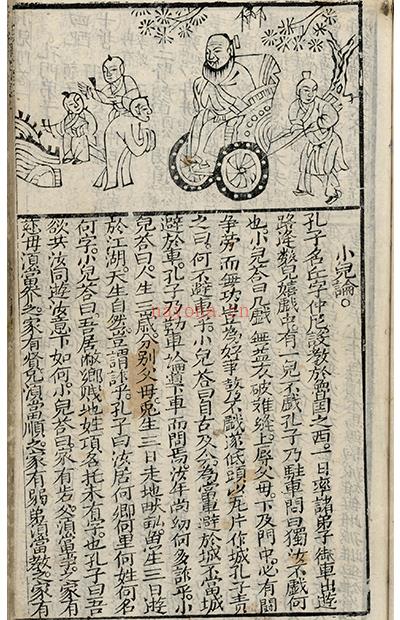 小兒論。
孔子名丘字仲尼設教於魯国之西一日率諸弟子御車出遊
路逢数兒嬉戲中有一兒不戲孔子乃駐車問曰獨汝不戲何
也小兒答曰凢戲無益衣破难縫上辱父母下及門中必有鬪
争劳而無功豈為好事故乃不戲遂低頭以瓦片作城孔子責
之曰何不避車乎小兒答曰自古及今為當車避於城不當城
避於車孔子乃勒車論道下車而問焉汝年尚幼何多詐乎小
兒答曰人生三歲分别父母兎生三日走地畎畝魚生三日遊
於江湖天生自然豈謂詐乎孔子曰汝居何鄉何里何姓何名
何字小兒答曰吾居敝鄉賎地姓項名托未有字也孔子曰吾
欲共汝同遊汝意下如何小兒答曰家有岩父湏當事之家有
慈母湏當养之家有賢兄湏當順之家有弱弟湏當教之家有